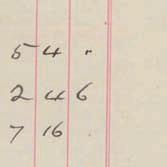 5 4 "
2 4 6
7 16